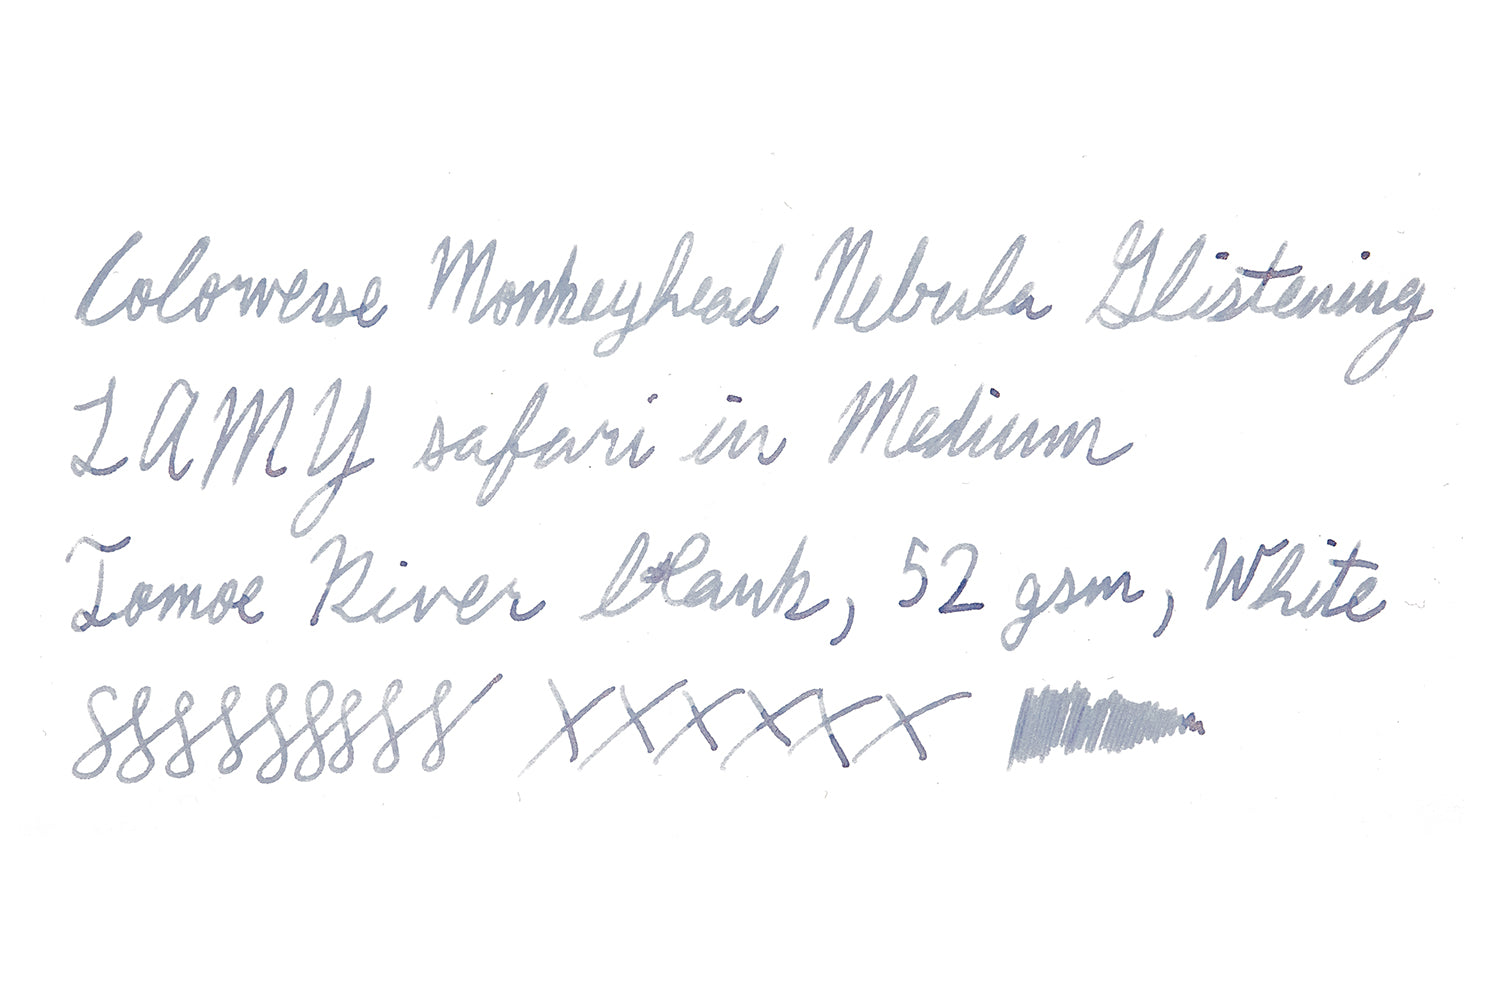 Colorverse Monkeyhead Nebula Glistening
LAMY safari in Medium
Tomoe River blank, 52 gsm, White